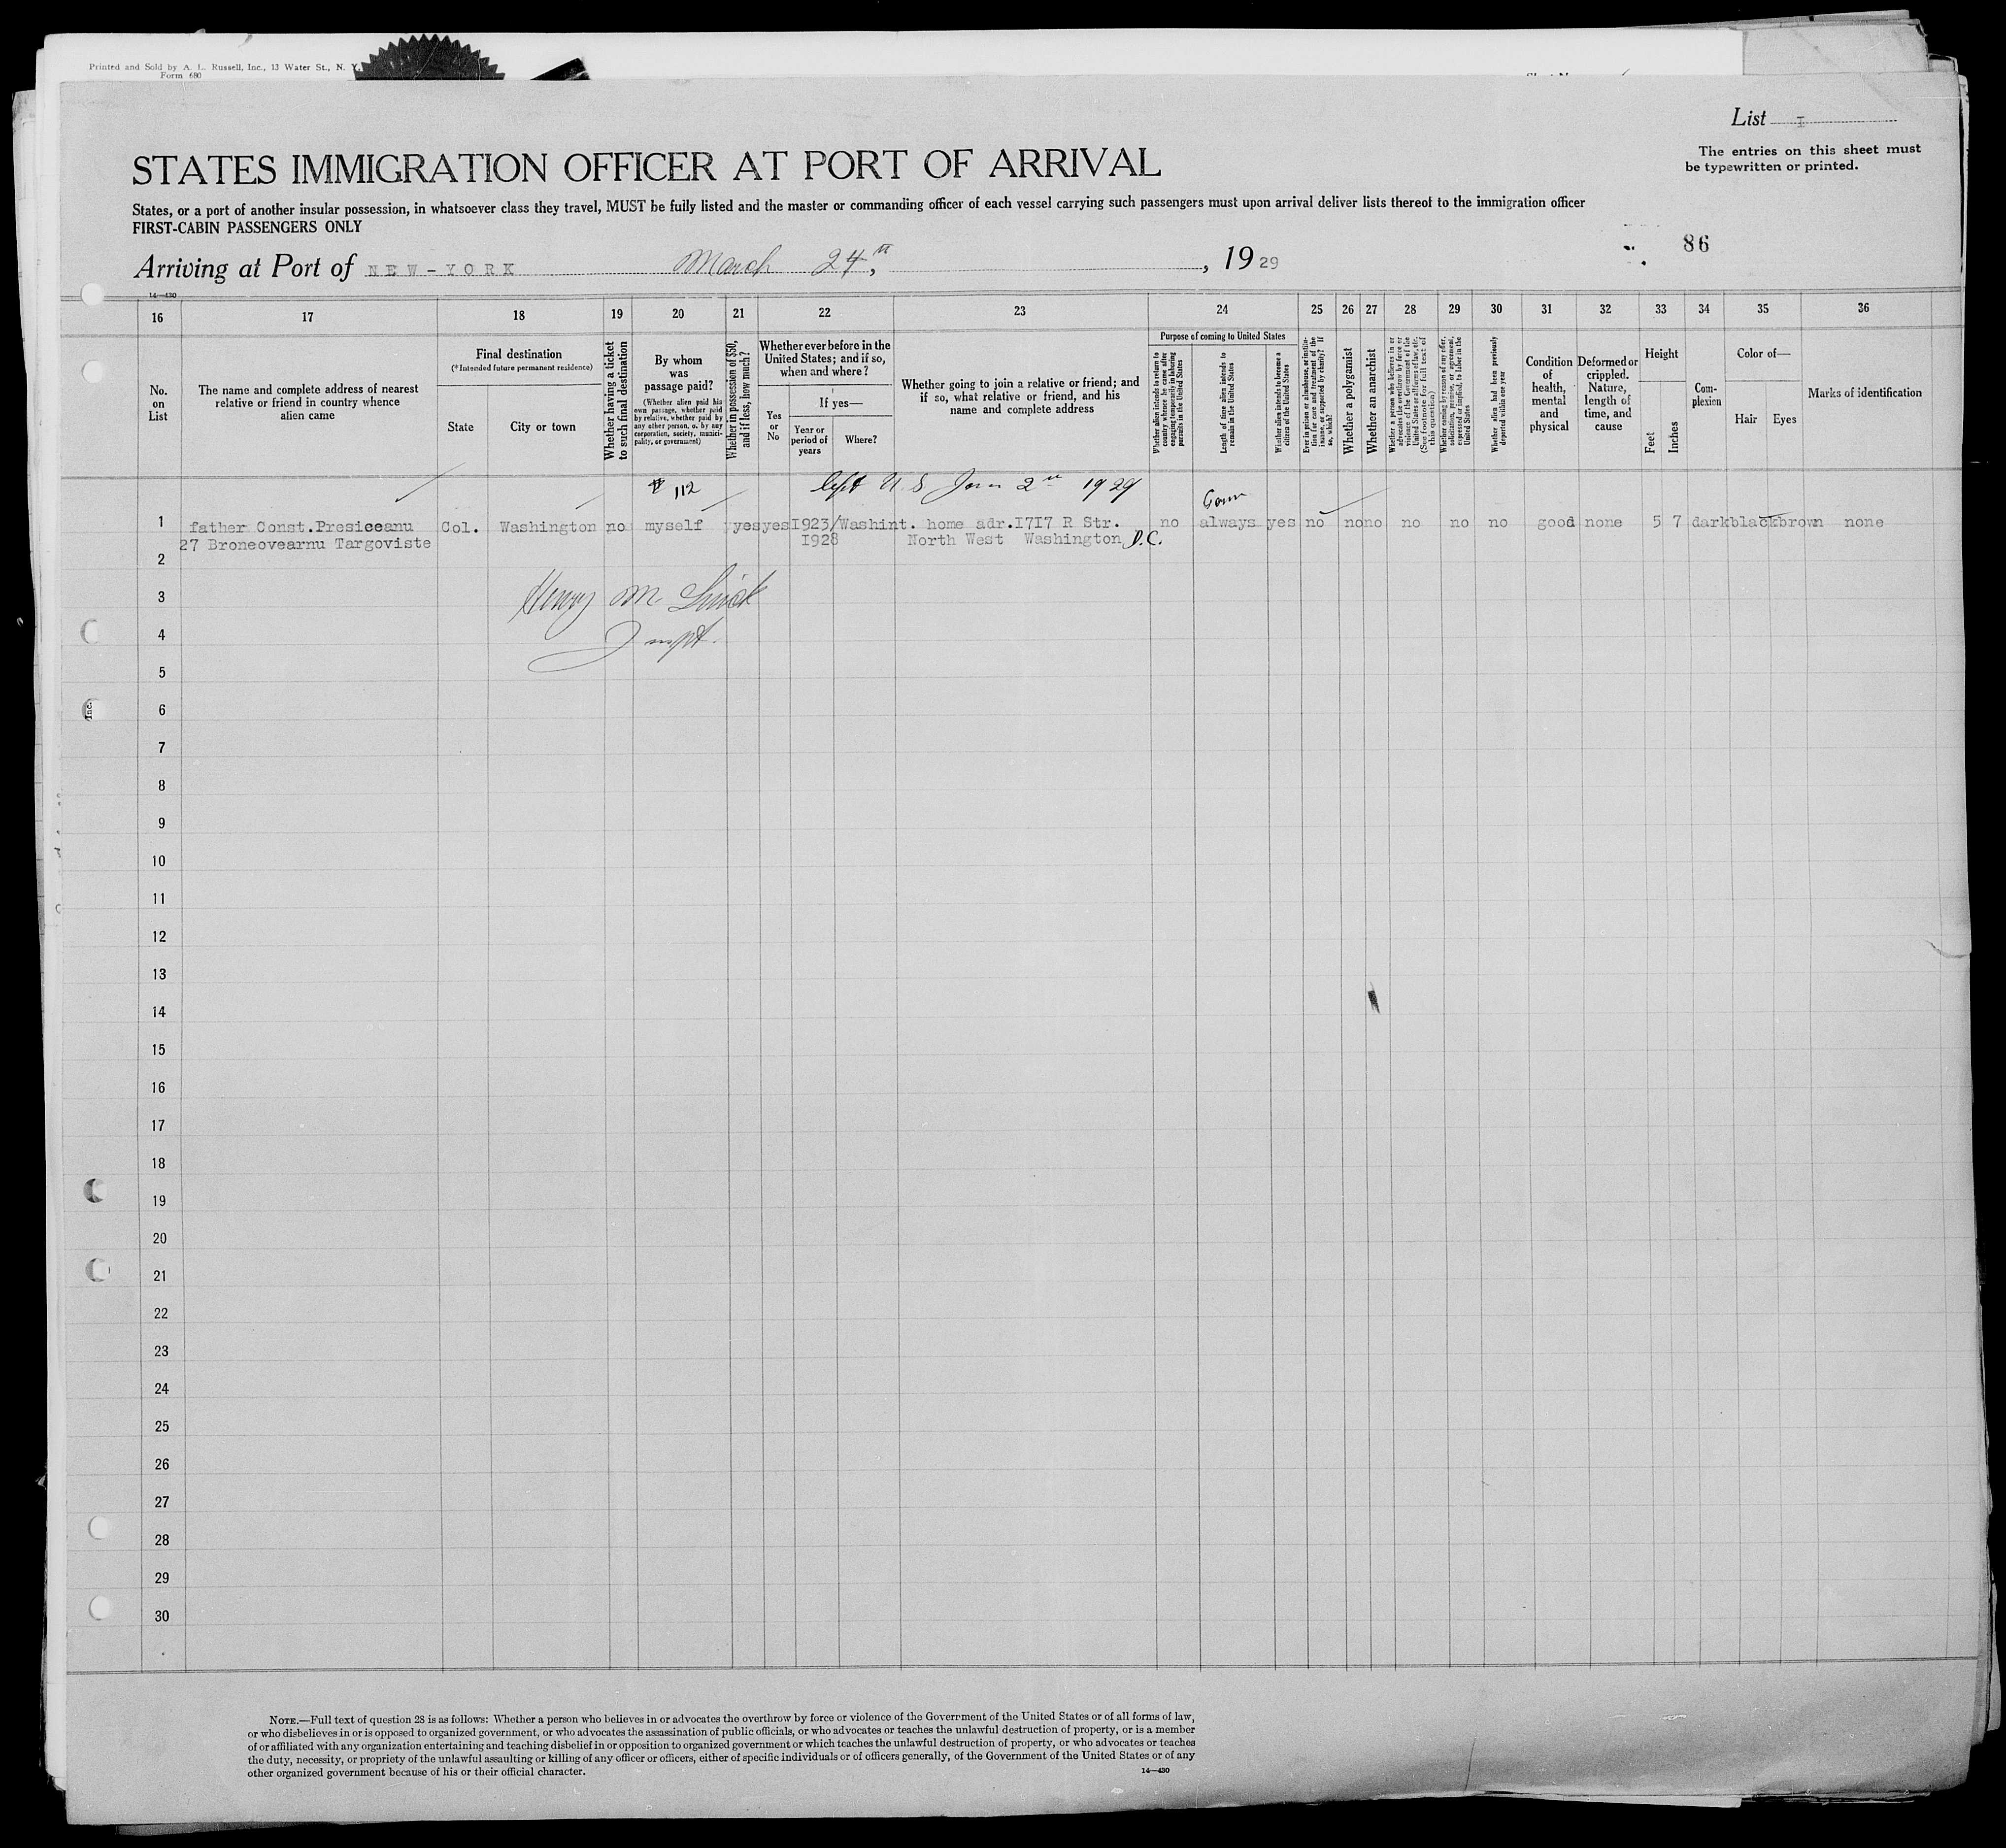 Printed and Sold by A. L. Russell, Inc., 13 Water St., N. Y.
Form 680
List I
STATES IMMIGRATION OFFICER AT PORT OF ARRIVAL
The entries on this sheet must
be typewritten or printed.
States, or a port of another insular possession, in whatsoever class they travel, MUST be fully listed and the master or commanding officer of each vessel carrying such passengers must upon arrival deliver lists thereof to the immigration officer
FIRST-CABIN PASSENGERS ONLY
86
Arriving at Port of NEW-YORK March 24,th, 1929
14—430
16 17 18 19 20 21 22 23 24 25 26 27 28 29 30 31 32 33 34 35 36
No.
on
List
The name and complete address of nearest
relative or friend in country whence
alien came
Final destination
(*Intended future permanent residence)
State
City or town
Whether having a ticket
to such final destination
By whom
was
passage paid?
(Whether alien paid his
own passage, whether paid
by relative, whether paid by
any other person, o. by any
corporation, society, munici-
pality, or government)
Whether in possession of $50,
and if less, how much?
Whether ever before in the
United States; and if so,
when and where?
Yes
or
No
If yes—
Year or
period of
years
Where?
Whether going to join a relative or friend; and
if so, what relative or friend, and his
name and complete address
Purpose of coming to United States
Whether alien intends to return to
country whence he came after
engaging temporarily in laboring
pursuits in the United States
Length of time alien intends to
remain in the United States
Whether alien intends to become a
citizen of the United States
Ever in prison or almshouse, or institu-
tion for care and treatment of the
insane, or supported by charity? If
so, which?
Whether a polygamist
Whether an anarchist
Whether a person who believes in or
advocates the overthrow by force or
violence of the Government of the
United States or all forms of law, etc.
(See footnote for full text of
this question)
Whether coming by reason of any offer,
solicitation, promise, or agreement,
expressed or implied, to labor in the
United States
Whether alien had been previously
deported within one year
Condition
of
health,
mental
and
physical
Deformed or
crippled.
Nature,
length of
time, and
cause
Height
Feet
Inches
Com-
plexion
Color of—
Hair
Eyes
Marks of identification
112 left U.S Jan 2nd 1929
1 father Const.Presiceanu Col. Washington no myself yes yes 1923/ Washint. home adr.1717 R Str. no always yes no no no no no no good none 5 7 dark black brown none
27 Broneovearnu Targoviste 1928 North West Washington D.C.
2
3 Henry M.
4
5
6
Inc.
7
8
9
10
11
12
13
14
15
16
17
18
19
20
21
22
23
24
25
26
27
28
29
30
NOTE.—Full text of question 28 is as follows: Whether a person who believes in or advocates the overthrow by force or violence of the Government of the United States or of all forms of law,
or who disbelieves in or is opposed to organized government, or who advocates the assassination of public officials, or who advocates or teaches the unlawful destruction of property, or is a member
of or affiliated with any organization entertaining and teaching disbelief in or opposition to organized government or which teaches the unlawful destruction of property, or who advocates or teaches
the duty, necessity, or propriety of the unlawful assaulting or killing of any officer or officers, either of specific individuals or of officers generally, of the Government of the United States or of any
other organized government because of his or their official character.
14—430